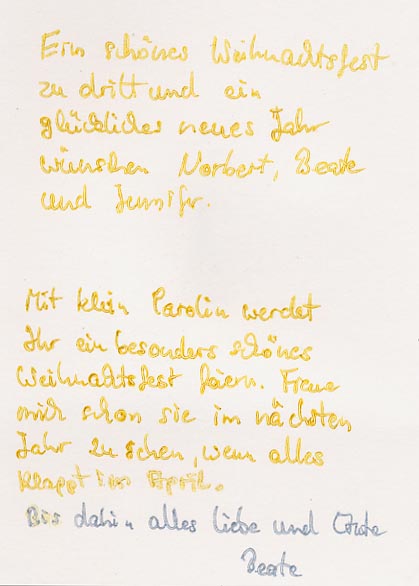 Ein schönes Weihnachtsfest
zu dritt und ein
glückliches neues Jahr
wünschen Norbert, Beate
und Jennifer.
Mit klein Carolin werdet
Ihr ein besonders schönes
Weihnachtsfest feiern. Freue
mich schon sie im nächsten
Jahr zu sehen, wenn alles
klappt im April.
Bis dahin alles liebe und Gute
Beate